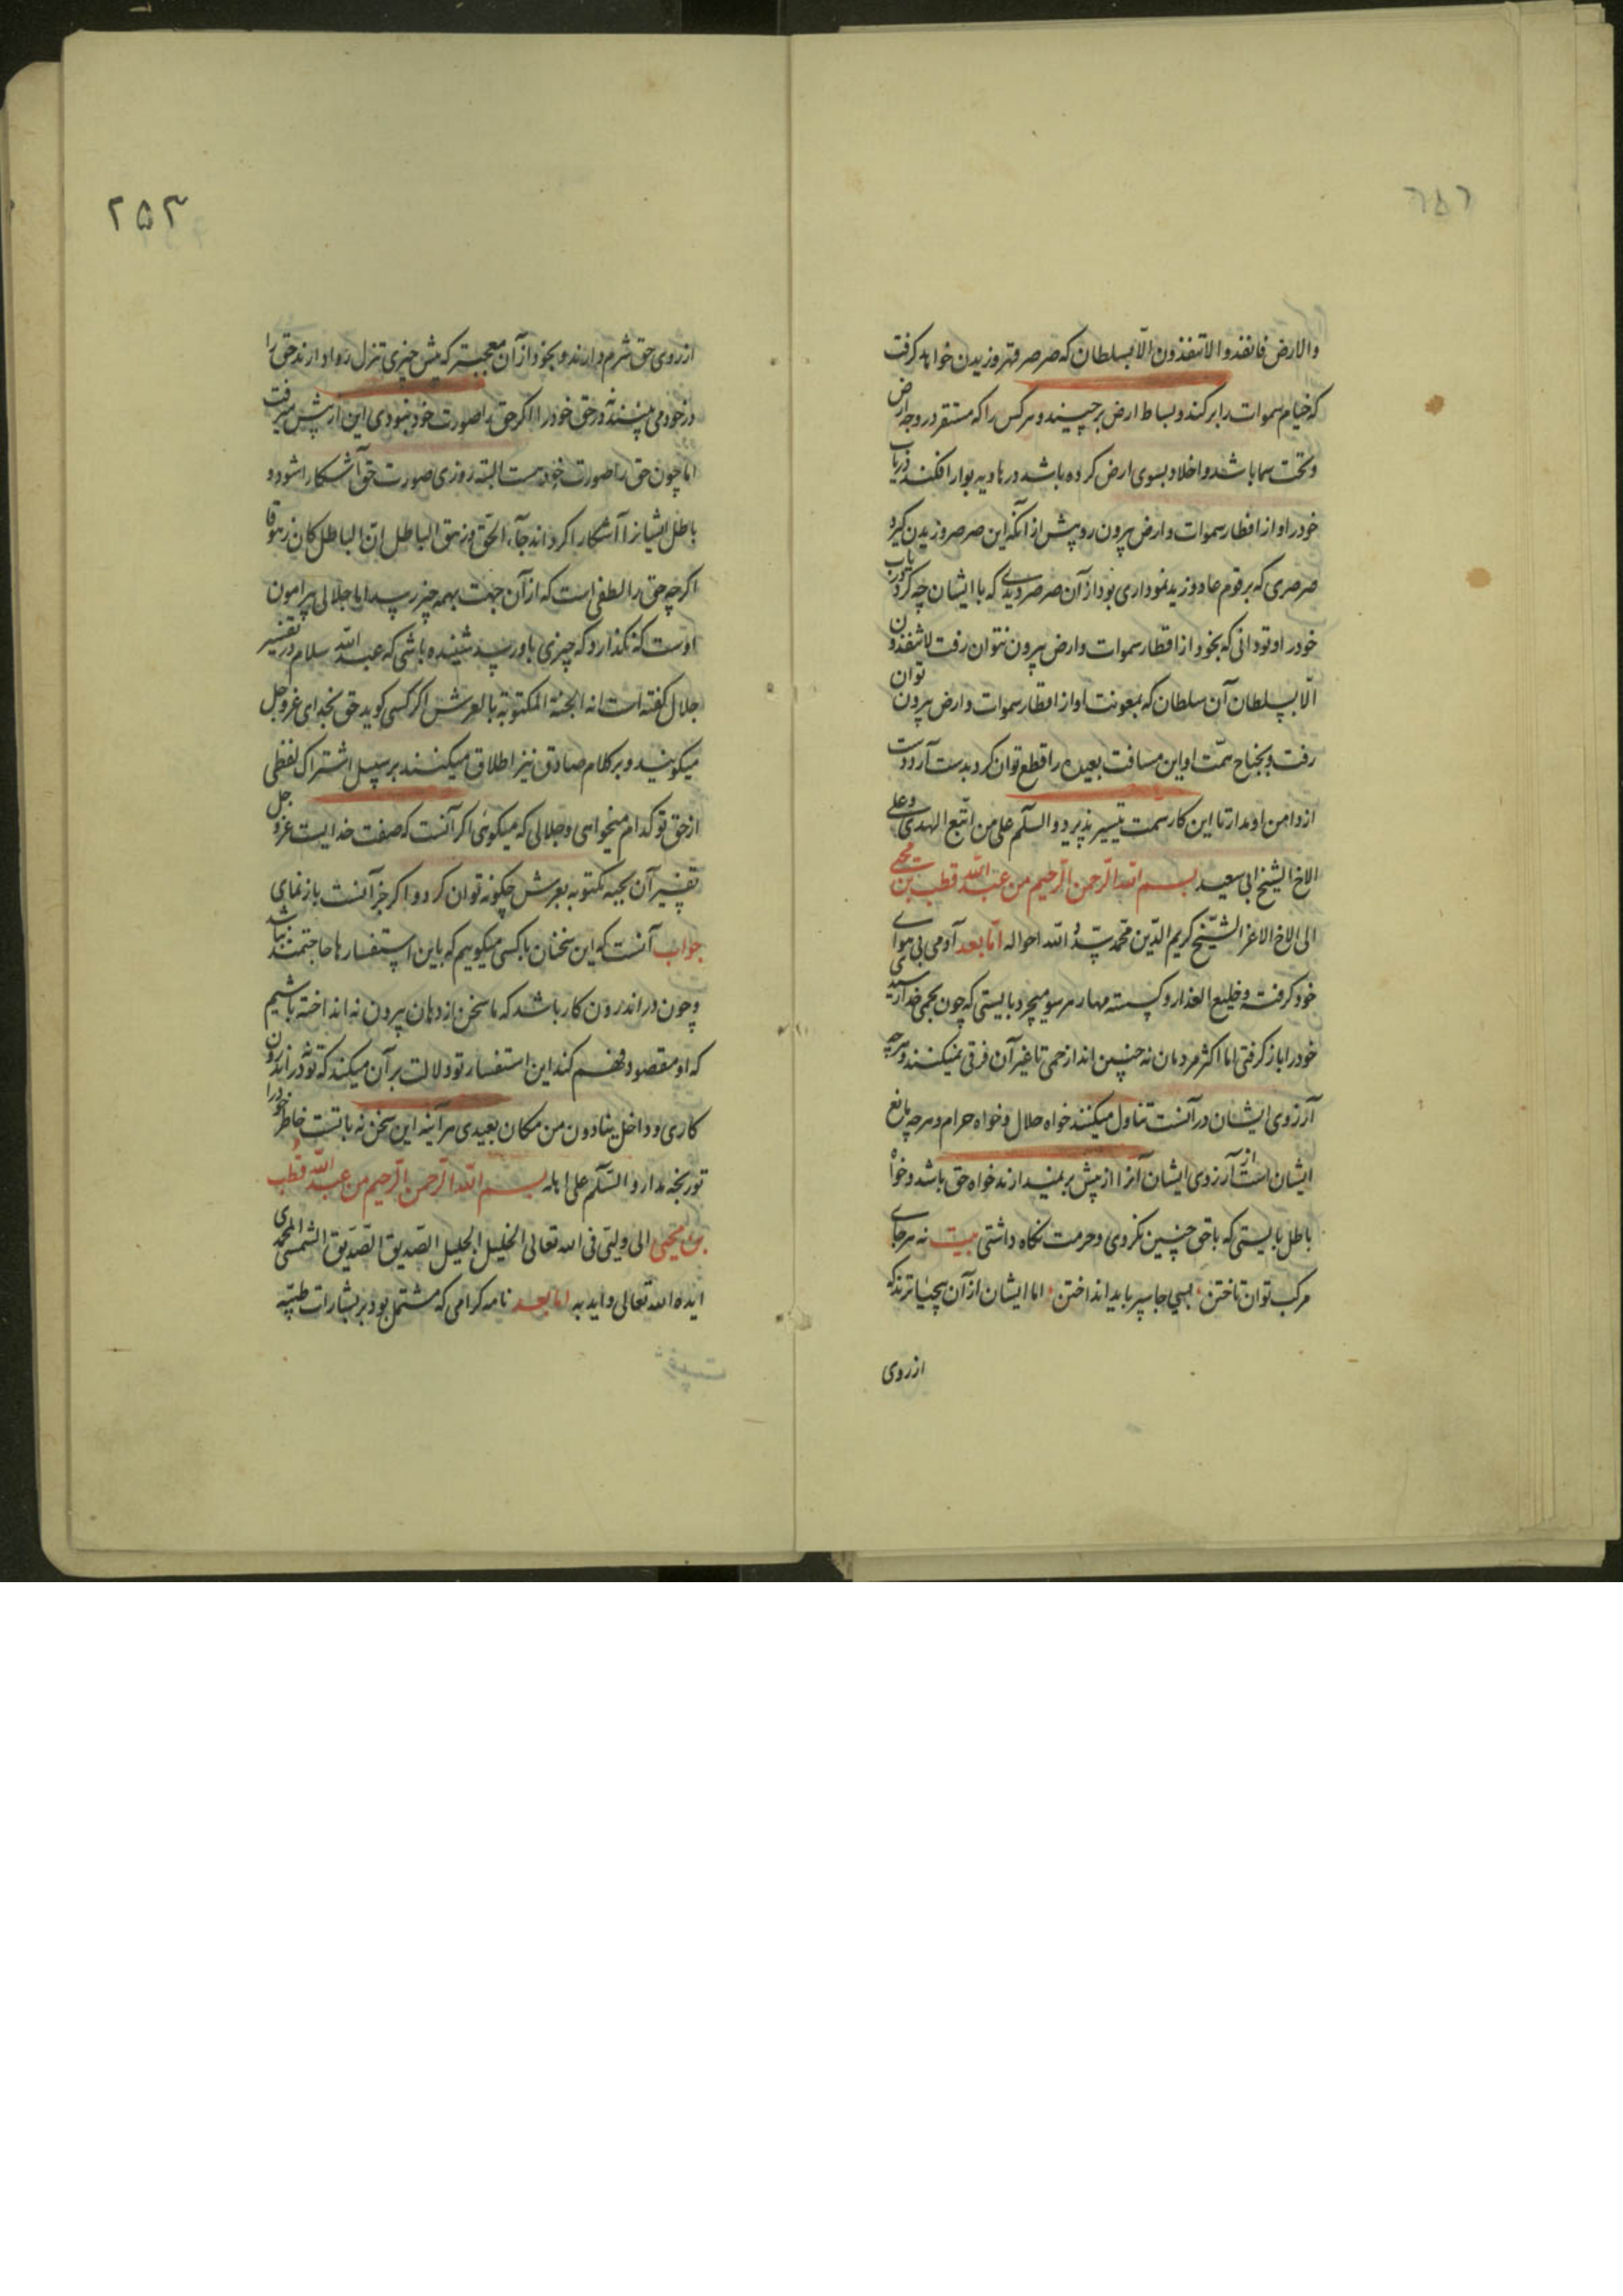 والارض فانفذوا لاتنفذون الّا بسلطان که صرصر قهر وزیدن خواهد کرفت
که خیام سموات را برکند و بساط ارض برچیند و هرکس را که مستقر در وجه ارض
و تحت سما باشد و اخلاد بسوی ارض کرده باشد در هاویه بوار افکند دریاب
خود را و از اقطار سموات و ارض بیرون رو پیش از آنکه این صرصر وزیدن کیرد
صرصری که بر قوم عاد وزید نموداری بود از آن صرصر دیدی که با ایشان چه کرد دریاب
خود را و تو دانی که بخود از اقطار سموات و ارض بیرون نتوان رفت لاتنفذون
الّا بسلطان آن سلطان که بمعونت او از اقطار سموات و ارض بیرون توان
رفت و بجناح همّت او این مسافت بعیده را قطع توان کرد بدست آر و دست
از دامن او مدار تا این کار سمت تیسیر پذیرد والسّلم علی من اتّبع الهدی و علی
الاخ الشیخ ابی سعید بسم الله الرّحمن الرّحیم من عبد الله قطب بن محیی
الی الاخ الاعز الشّیخ کریم الدّین محمد سدّد الله احواله امّا بعد آدمی پی هوای
خود کرفته و خلیع العذار و کسسته مهار هر سو میچرد بایستی که چون بحمی خدا رسیدی
خود را باز کرفتی اما اکثر مردمان نه چنین اند از حمی تا غیر آن فرقی نمیکنند و هرچه
آرزوی ایشان در آنست تناول میکنند خواه حلال و خواه حرام و هرچه مانع
ایشان است از آرزوی ایشان آنرا از پیش برمیندازند خواه حق باشد و خواه
باطل بایستی که با حق چنین نکردی و حرمت نکاه داشتی بیت نه هر جای
مرکب توان تاختن · که جا سپر باید انداختن · اما ایشان از آن بیحیاترند که
از روی
۲۵۳
از روی حق شرم دارند و بخود از آن معجبتر که پیش چیزی تنزل روا دارند حق را
در خود می بینند نه در حق خود را اکر حق را صورت خود نبودی این از پیش میرفت
اما چون حق را صورت خود هست البته روزی صورت حق آشکارا شود و
باطل ایشانرا آشکارا کرداند جآء الحق و زهق الباطل انّ الباطل کان زهوقا
اکرچه حق را لطفی است که از آن جهت بهمه چیز رسد اما جلالی پیرامون
اوست که نکذارد که چیزی باو رسد شنیده باشی که عبد الله سلام در تفسیر
جلال کفته است انه الجنة المکتوبة بالعرش اکر کسی کوید حق بخدای عزّ و جل
میکویند و بر کلام صادق نیز اطلاق میکنند بر سبیل اشتراک لفظی
از حق تو کدام میخواهی و جلالی که میکوئی اکر آنست که صفت خدایست عزّ و جل
تفسیر آن بجنه مکتوبه بعرش چکونه توان کرد و اکر جز آنست باز نمای
جواب آنست که این سخنان با کسی میکوییم که باین استفسارها حاجتمند نباشد
و چون در اندرون کار باشد که ما سخن از دهان بیرون نه انداخته باشیم
که او مقصود فهم کند این استفسار تو دلالت بر آن میکند که تو در اندرون
کاری و داخل ینادون من مکان بعیدی هر آینه این سخن نه بابتست خاطر خود را
تو رنجه مدار و السّلم علی اهله بسم الله الرّحمن الرّحیم من عبد الله قطب
بن محیی الی ولیّی فی الله تعالی الخلیل الجلیل الصّدیق الصّدّیق الشّمسی المحمدی
ایّده الله تعالی و اید به اما بعد نامه کرامی که مشتمل بود بر بشارات طیّبه